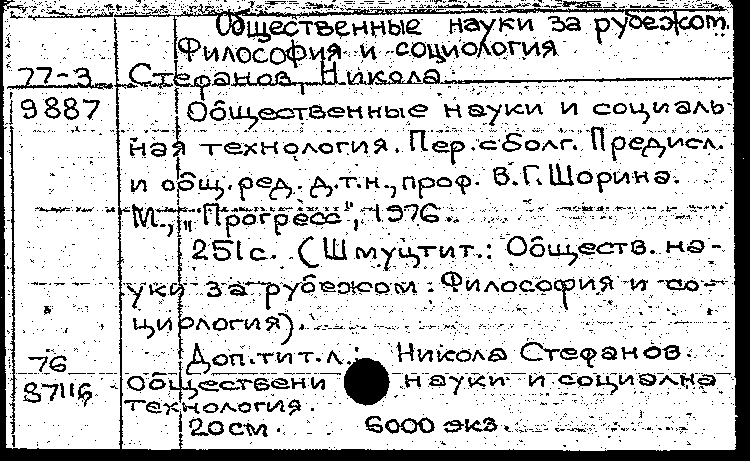 Общественные науки за рубежом.
Философия и социология
77-3 Стефанов, Никола
9887 Общественные науки и социаль
ная технология. Пер. с болг. Предисл.
и общ. ред. д.т.н., проф. В.Г. Шорина.
М., „Прогресс", 1976.
251с. (Шмуцтит.: Обществ. на-
уки за рубежом. Философия и со-
циология).
76 Доп. тит. л.: Никола Стефанов.
87116 Обществени науки и социална
технология.
20см. 6000 экз.